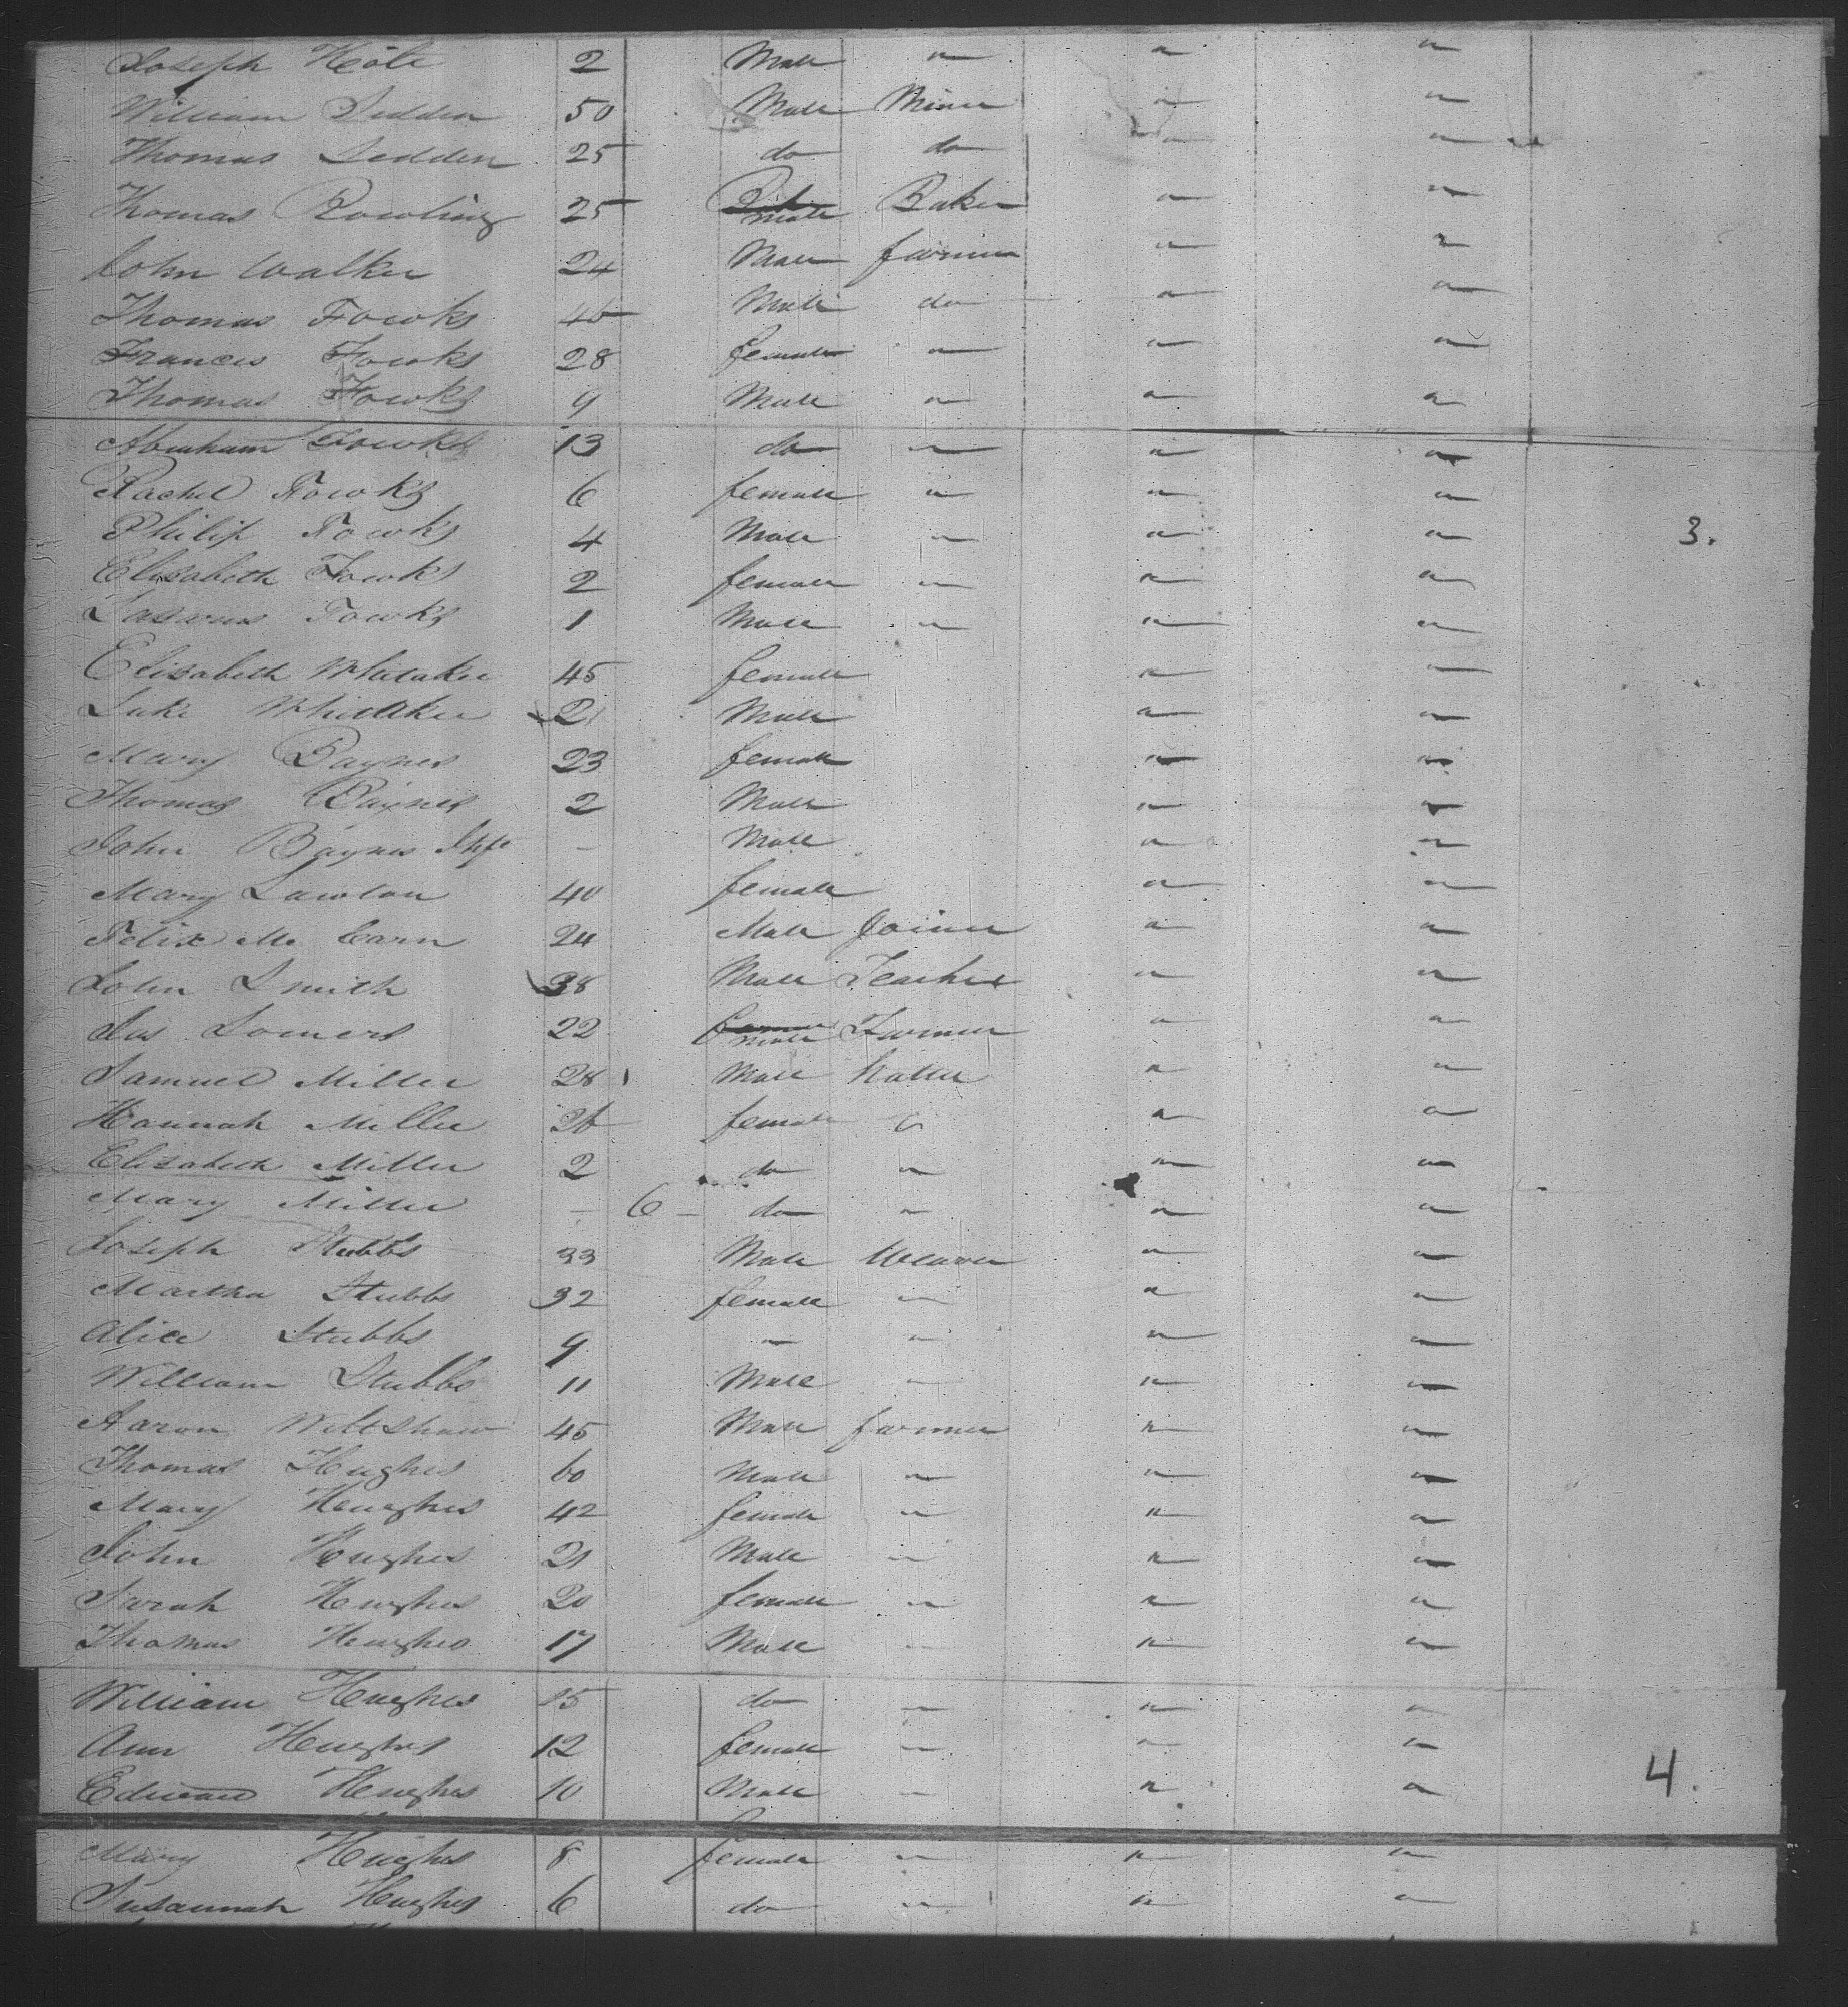 Joseph Hole 2 Male " " "
William Seddon 50 Male Miner " "
Thomas Seddon 25 do do " "
Thomas Rowling 25 male Baker " "
John Walker 24 Male farmer " "
Thomas Fowks 45 Male do " "
Frances Fowks 28 female " " "
Thomas Fowks 9 Male " " "
Abraham Fowks 13 do " " "
Rachel Fowks 6 female " " "
Philip Fowks 4 Male " " " 3.
Elisabeth Fowks 2 female " " "
Lasarus Fowks 1 Male " " "
Elisabeth Whitaker 45 female " "
Luke Whittaker 21 Male " "
Mary Baynes 23 female " "
Thomas Baynes 2 Male " "
John Baynes Inft — Male " "
Mary Lawton 40 female " "
Felix Mc Carn 24 Male Joiner " "
John Smith 38 Male Teacher " "
Jas Somers 22 male Farmer " "
Samuel Miller 28 Male hatter " "
Hannah Miller 26 female " " "
Elisabeth Miller 2 do " " "
Mary Miller — 6 — do " " "
Joseph Stubbs 33 Male Weaver " "
Martha Stubbs 32 female " " "
Alice Stubbs 9 " " " "
William Stubbs 11 Male " " "
Aaron Wiltshaw 45 Male farmer " "
Thomas Hughes 60 Male " " "
Mary Hughes 42 female " " "
John Hughes 21 Male " " "
Sarah Hughes 20 female " " "
Thomas Hughes 17 Male " " "
William Hughes 15 do " " "
Ann Hughes 12 female " " "
Edward Hughes 10 Male " " " 4.
Mary Hughes 8 female " " "
Susannah Hughes 6 do " " "